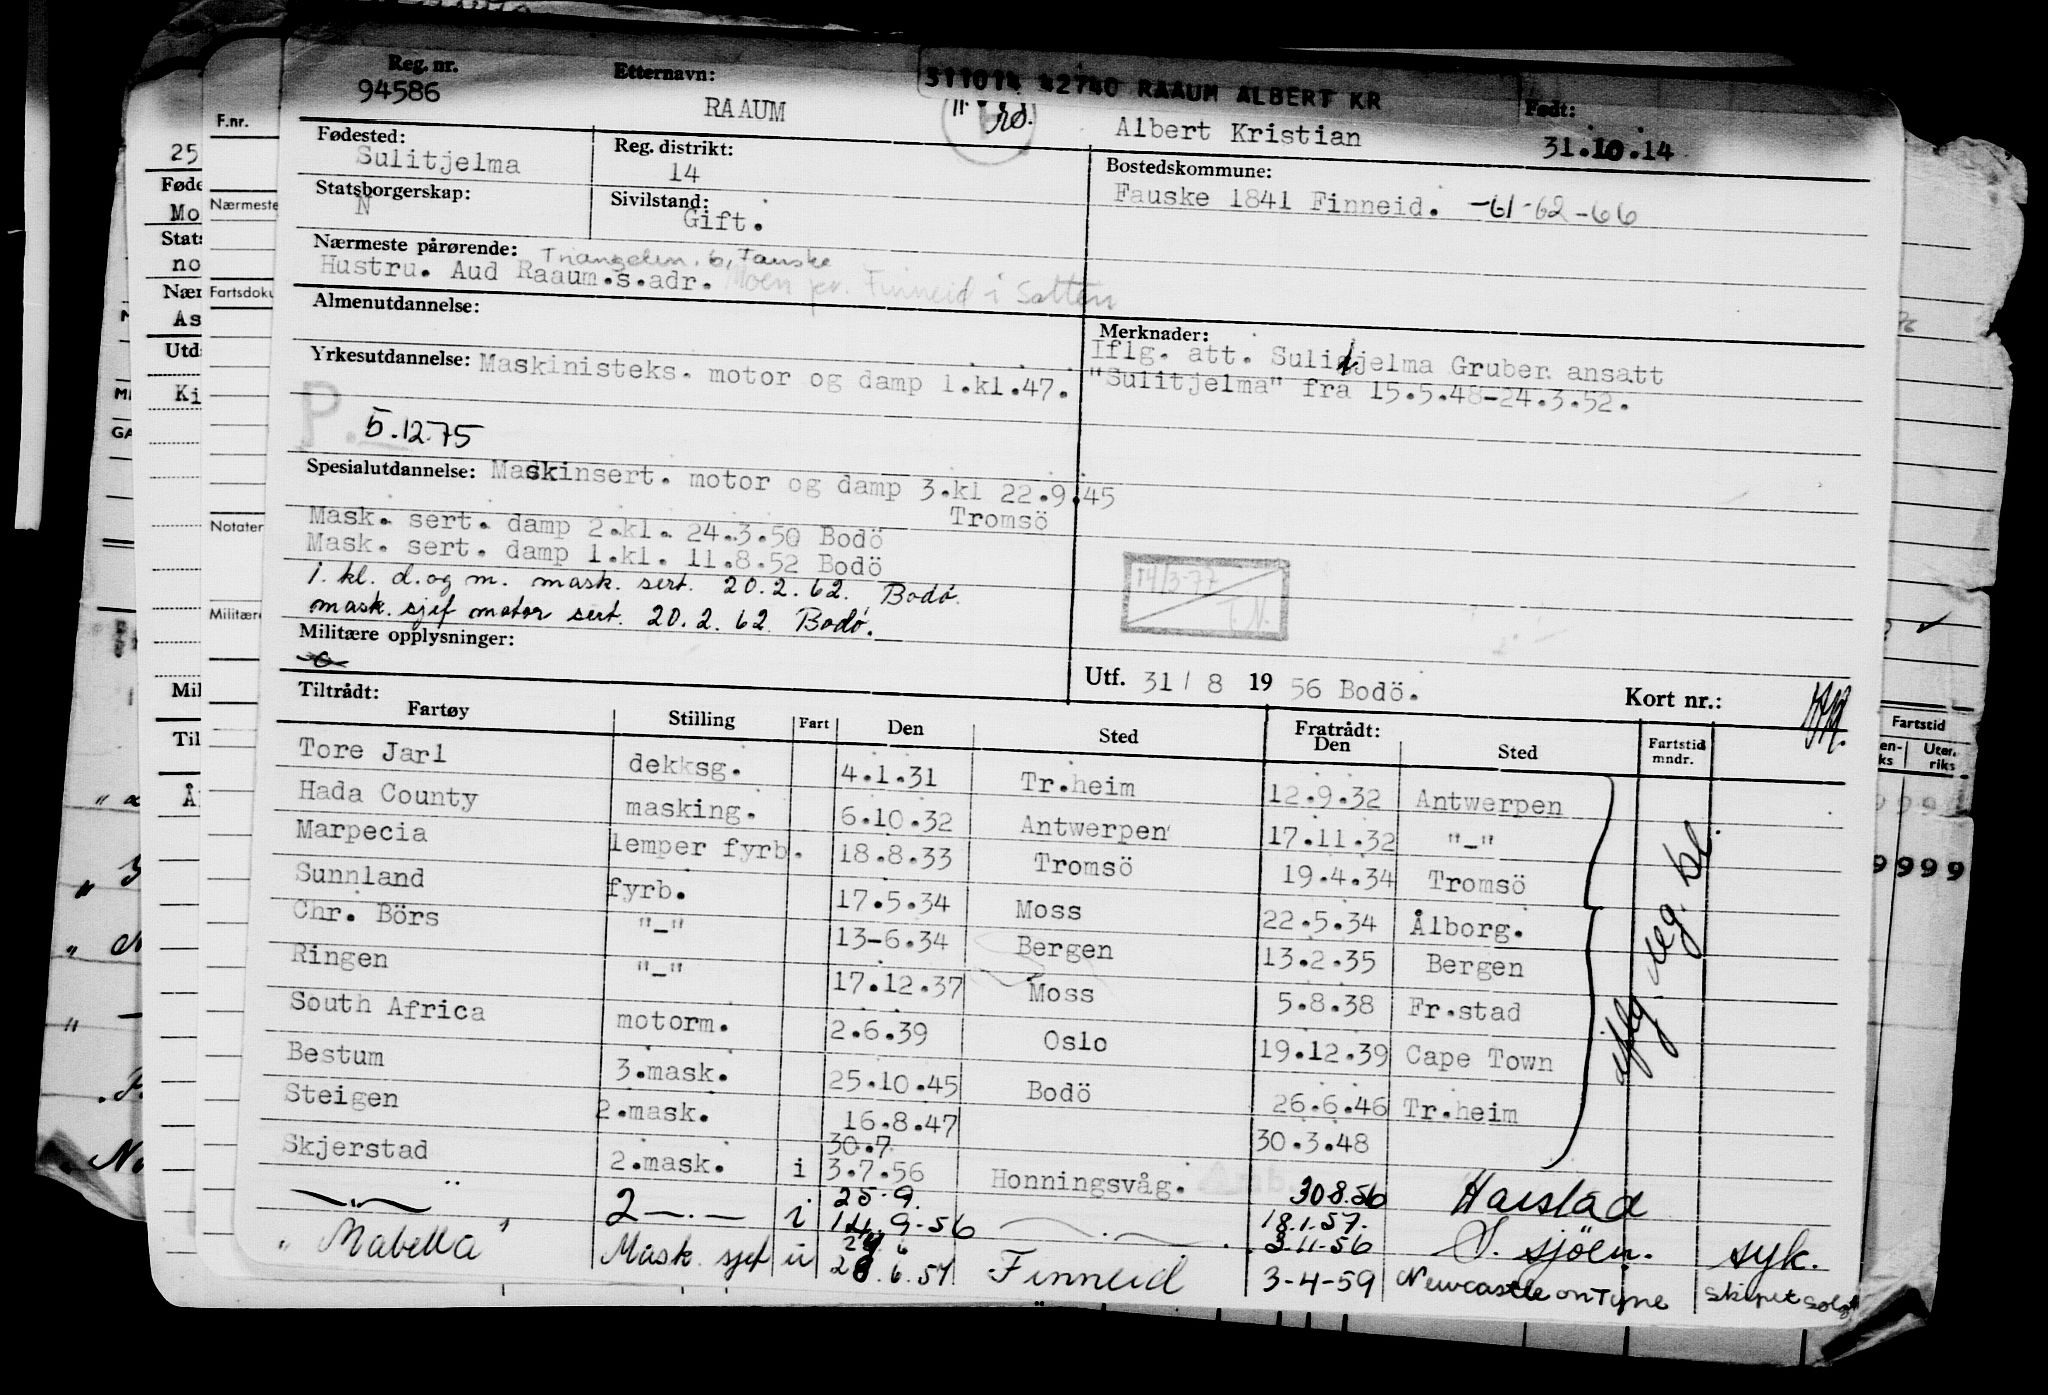 Reg. nr. Etternavn: 511014 42740 RAAUM ALBERT KR Født:
94586 RAAUM Albert Kristian 31.10.14
Fødested: Reg. distrikt: Bostedskommune:
Sulitjelma 14 Fauske 1841 Finneid. -61-62-66
Statsborgerskap: Sivilstand:
N Gift.
Nærmeste pårørende: Triangelen. 6, Fauske
Hustru. Aud Raaum.s.adr. Moen pr. Finneid i Salten
Almenutdannelse: Merknader:
Iflg. att. Sulitjelma Gruber ansatt
Yrkesutdannelse: Maskinisteks. motor og damp 1.kl.47. "Sulitjelma" fra 15.5.48-24.3.52.
P. 5.12.75
Spesialutdannelse: Maskinsert. motor og damp 3.kl 22.9.45
Tromsö
Mask. sert. damp 2.kl. 24.3.50 Bodö
Mask. sert. damp 1.kl. 11.8.52 Bodö
1. kl. d. og m. mask. sert. 20.2.62. Bodø.
mask. sjef motor sert. 20.2.62 Bodø.
14/3-77
T.N.
Militære opplysninger:
Utf. 31/8 1956 Bodö. Kort nr.:
Tiltrådt: Fratrådt:
Fartøy Stilling Fart Den Sted Den Sted Fartstid mndr.
Tore Jarl dekksg. 4.1.31 Tr.heim 12.9.32 Antwerpen
Hada County masking. 6.10.32 Antwerpen 17.11.32 "-"
Marpecia lemper fyrb. 18.8.33 Tromsö 19.4.34 Tromsö
Sunnland fyrb. 17.5.34 Moss 22.5.34 Ålborg.
Chr. Börs "-" 13-6.34 Bergen 13.2.35 Bergen
Ringen "-" 17.12.37 Moss 5.8.38 Fr.stad
South Africa motorm. 2.6.39 Oslo 19.12.39 Cape Town
Bestum 3.mask. 25.10.45 Bodö 26.6.46 Tr.heim
Steigen 2.mask. 16.8.47 30.3.48
iflg. reg. bl.
30.7
Skjerstad 2.mask. i 3.7.56 Honningsvåg. 30.8.56 Harstad
25.9. 18.1.57.
—"— 2 —.— i 14.9-56 —.— 3-11-56 S. sjöen. syk.
"Mabella" Mask. sjef u 28.6.57 Finneid 3-4-59 Newcastle on Tyne skipet solgt
F.nr.
Nærmeste
Fartsdoku
Notater
Militære
25
Føde
Mo
Stats
no
Nær
As
Utd
Ki
Mil
Til
Fartstid
Uten-
riks
9 9 9 9